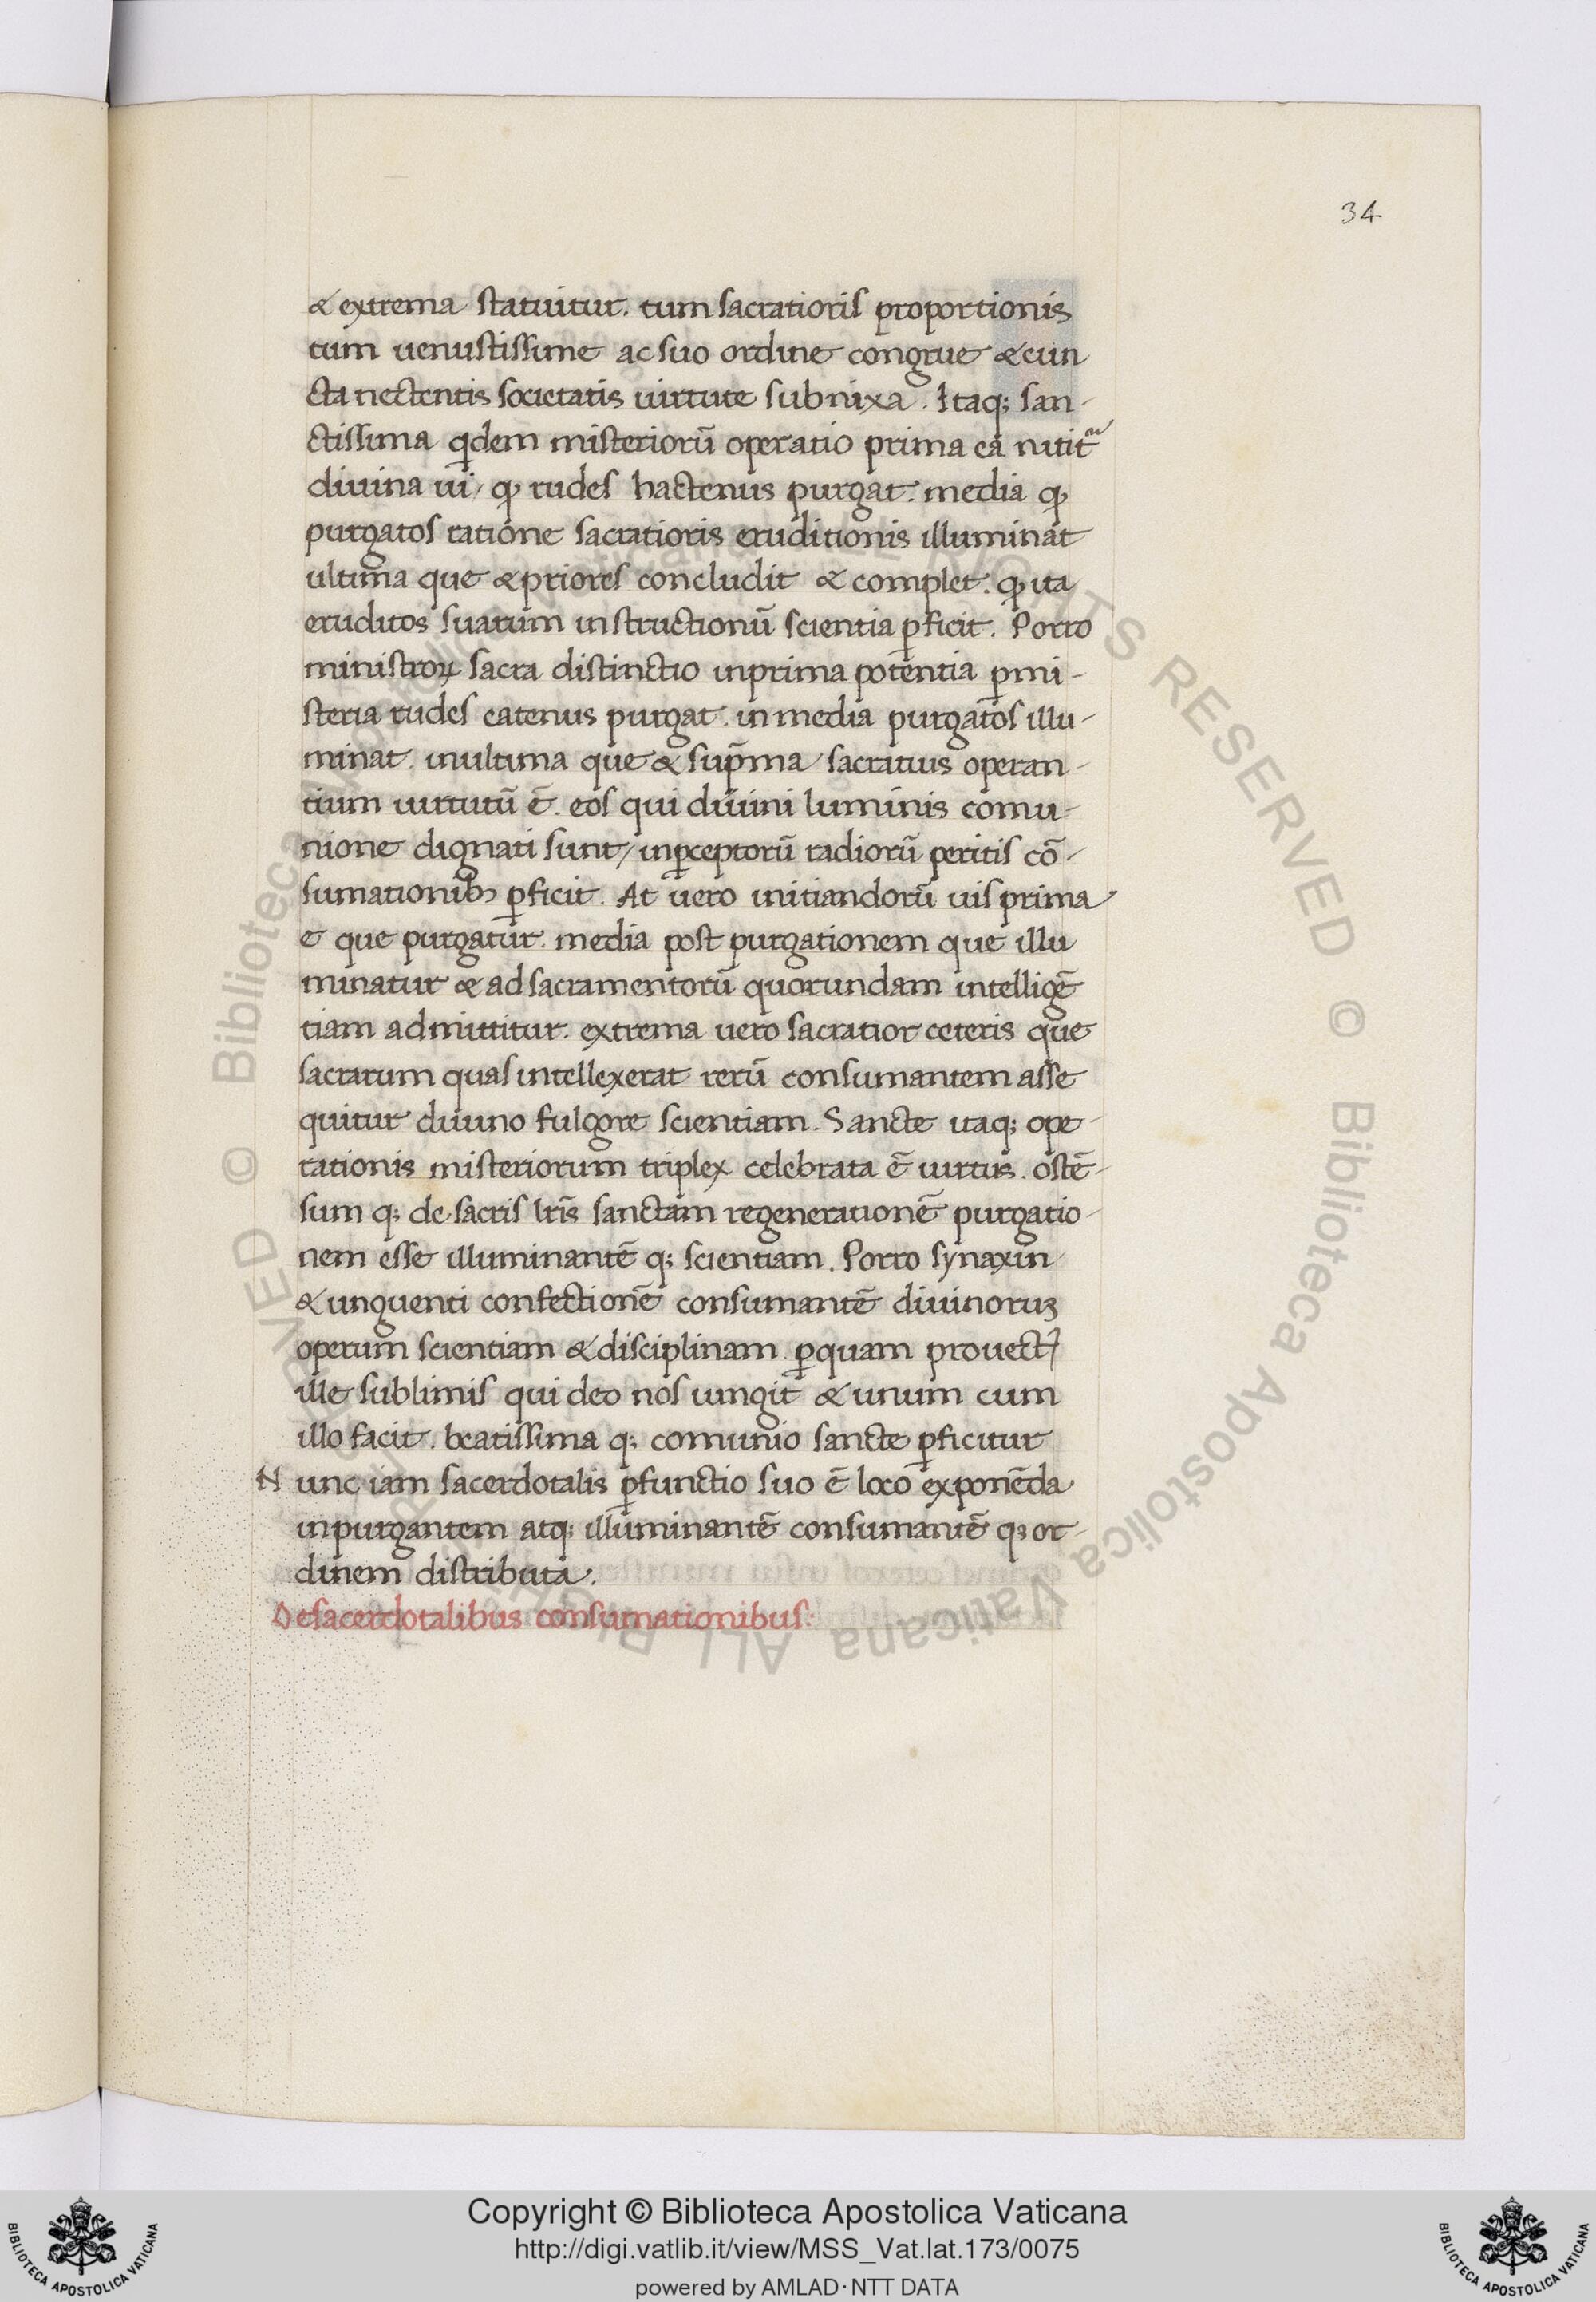 34
& extrema statuitur. tum sacratioris proportionis
tum uenustissime ac suo ordine congrue & cun
cta nectentis societatis uirtute subnixa. Itaq; san-
ctissima qdem misteriorū operatio prima ea nitit
diuina ui, qͥ rudes hactenus purgat. media qͥ
purgatos ratione sacratioris eruditionis illuminat
ultima que & priores concludit & complet. qͥ ita
eruditos suarum instructionū scientia ꝑficit. Porro
ministroꝝ sacra distinctio in prima potentia ꝑ mi-
steria rudes eatenus purgat. in media purgatos illu-
minat. in ultima que & sup̄ma sacratius operan-
tium uirtutū ē. eos qui diuini luminis comu-
nione dignati sunt, in ꝑceptorū radiorū peritis cō-
sumationibꝫ ꝑficit. At uero initiandorū uis prima
e que purgatur. media post purgationem que illu
minatur & ad sacramentorū quorundam intelligē
tiam admittitur. extrema uero sacratior ceteris que
sacrarum quas intellexerat rerū consumantem asse
quitur diuino fulgore scientiam. Sancte itaq; ope-
rationis misteriorum triplex celebrata ē uirtus. ostē-
sum q; de sacris lr̄is sanctam regenerationē purgatio-
nem esse illuminantē q; scientiam. Porro synaxin
& unguenti confectionē consumantē diuinoruꝫ
operum scientiam & disciplinam. ꝑ quam prouectꝰ
ille sublimis qui deo nos iungit & unum cum
illo facit. beatissima q; comunio sancte ꝑficitur
Nunc iam sacerdotalis ꝑfunctio suo ē loco exponēda
in purgantem atq; illuminantē consumantē q; or-
dinem distributa.
De sacerdotalibus consumationibus:
© Biblioteca Apostolica Vaticana ALL RIGHTS RESERVED
Copyright © Biblioteca Apostolica Vaticana
http://digi.vatlib.it/view/MSS_Vat.lat.173/0075
powered by AMLAD·NTT DATA
BIBLIOTECA APOSTOLICA VATICANA
BIBLIOTECA APOSTOLICA VATICANA